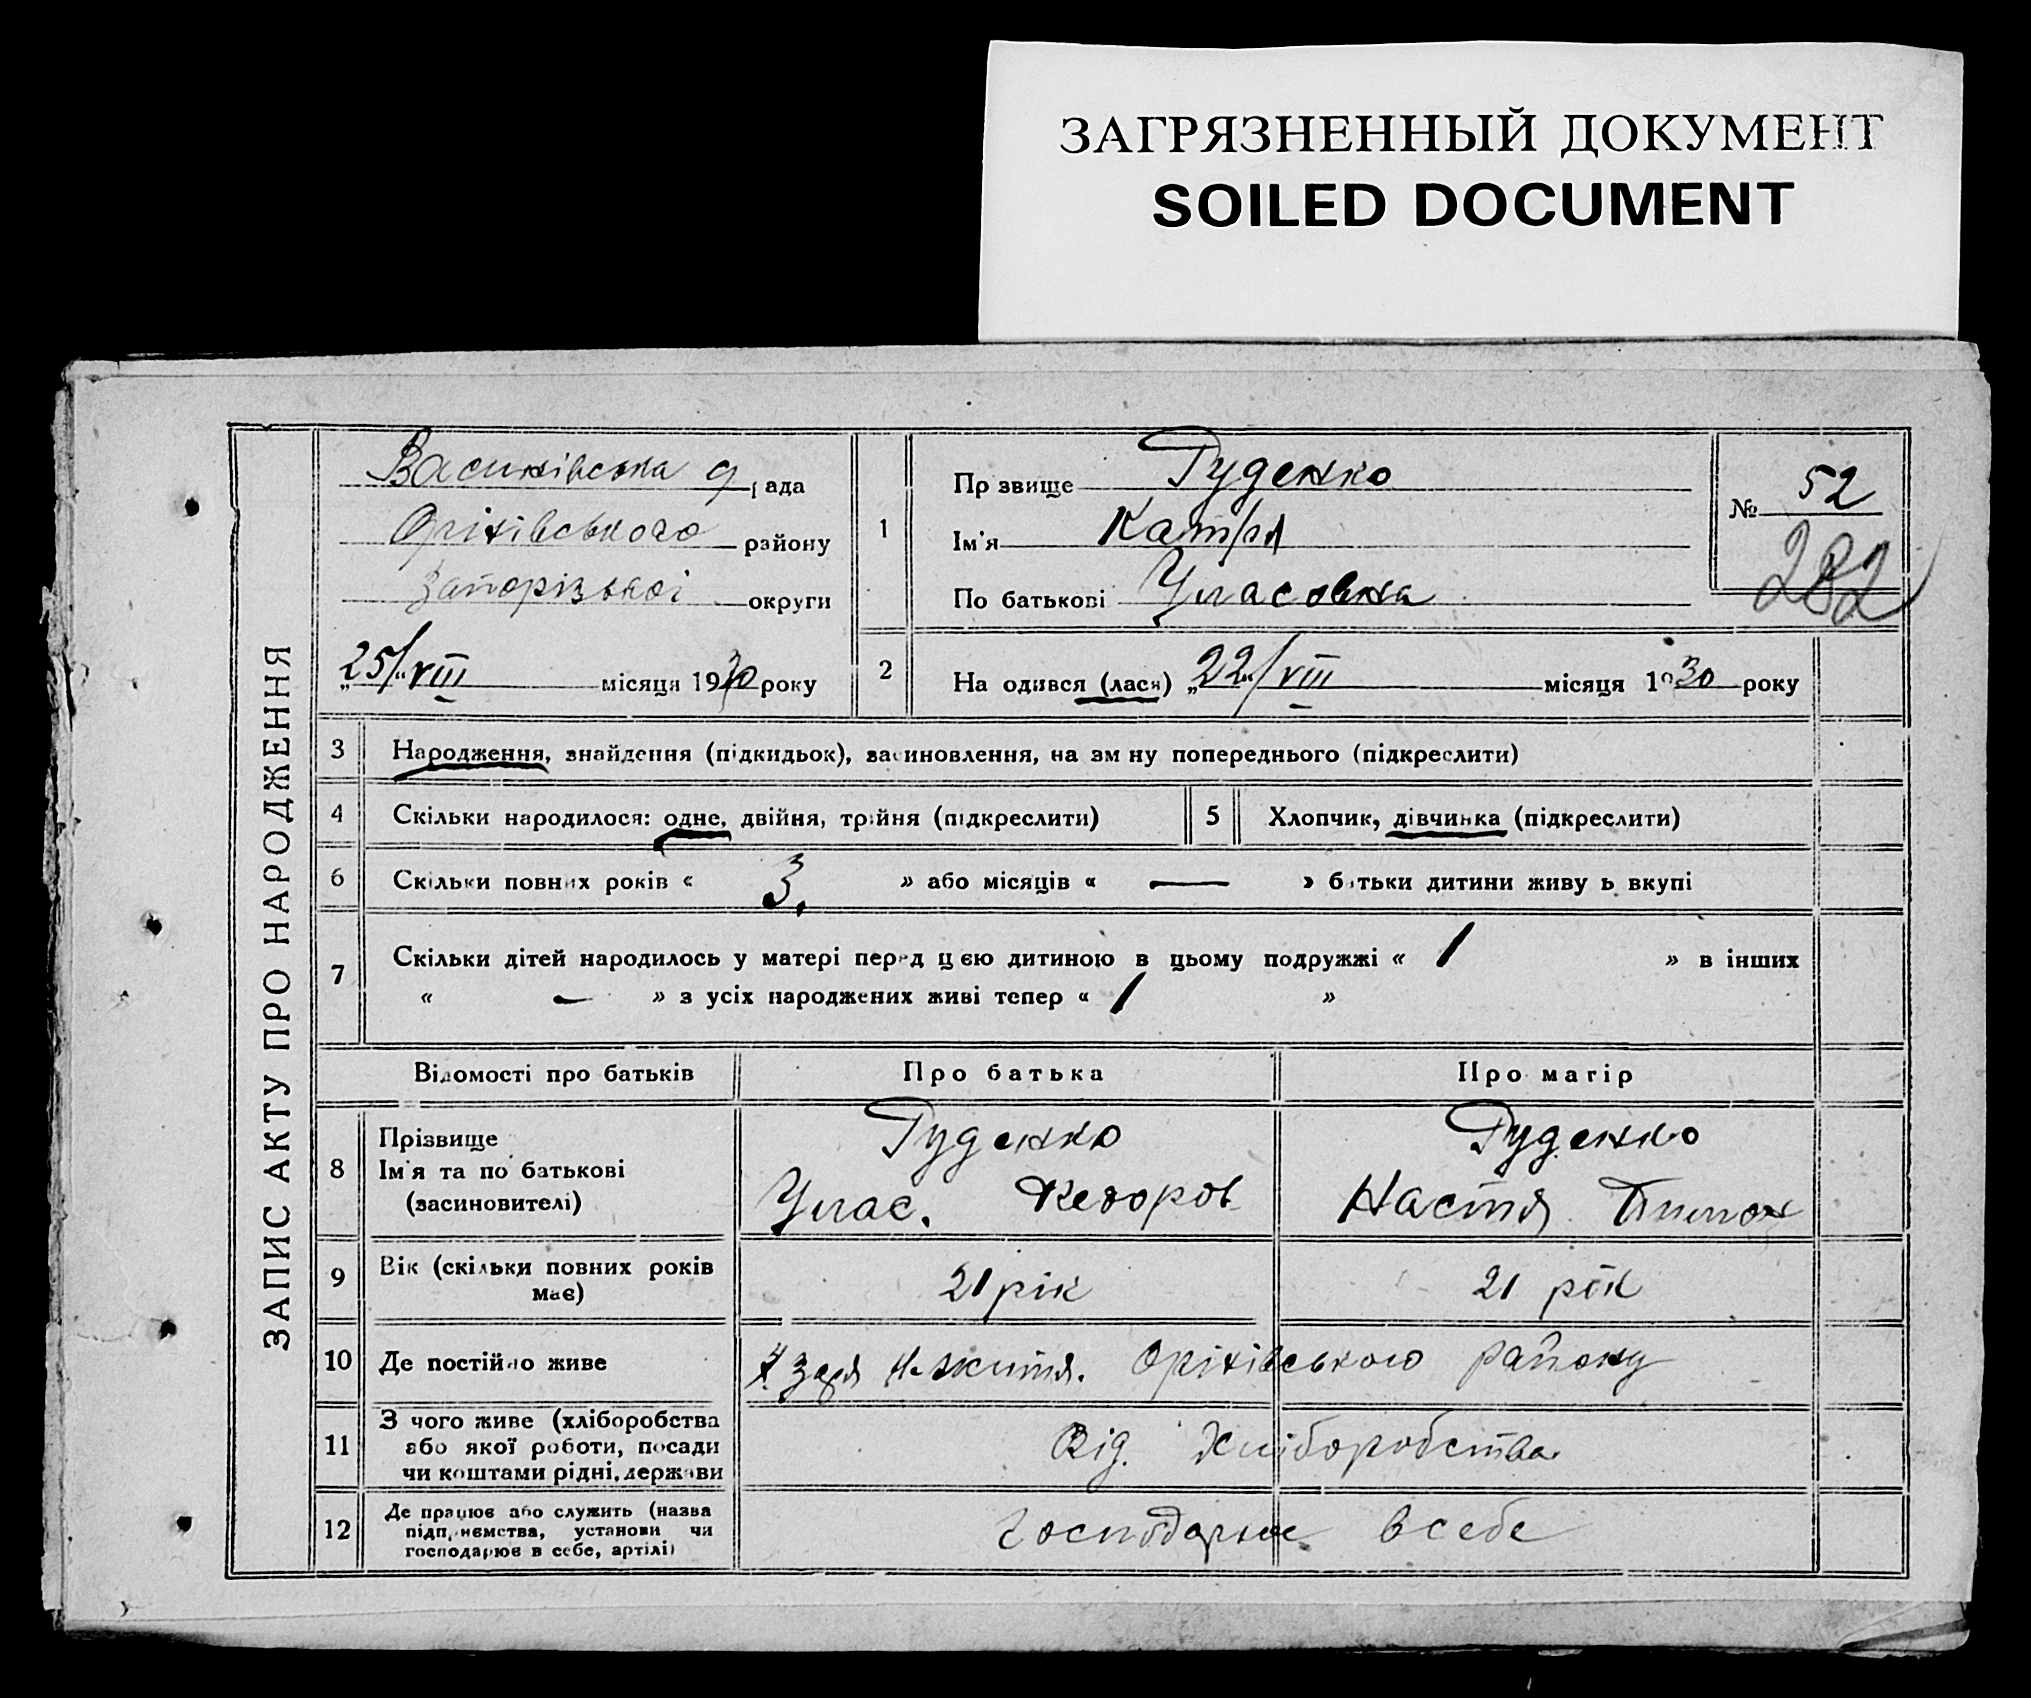 ЗАГРЯЗНЕННЫЙ ДОКУМЕНТ
SOILED DOCUMENT
ЗАПИС АКТУ ПРО НАРОДЖЕННЯ
рада
Оріхівського району
Запорізької округи
„25/“ VIII місяця 1930 року
1
Прізвище Руденко
Ім'я Катря
По батькові Уласовна
№ 52
282
2 Народився (лася) „22“/VIII місяця 1930 року
3 Народження, знайдення (підкидьок), засиновлення, на зміну попереднього (підкреслити)
4 Скільки народилося: одне, двійня, трійня (підкреслити) 5 Хлопчик, дівчинка (підкреслити)
6 Скільки повних років « 3. » або місяців « — » батьки дитини живуть вкупі
7 Скільки дітей народилось у матері перед цією дитиною в цьому подружжі « 1 » в інших
« — » з усіх народжених живі тепер « 1 »
Відомості про батьків Про батька Про матір
8 Прізвище Руденко Руденко
Ім'я та по батькові Улас. Федоров Настя
(засиновителі)
9 Вік (скільки повних років має) 21 рік 21 рік
10 Де постійно живе Зоря життя. Оріхівського району
11 З чого живе (хліборобства або якої роботи, посади чи коштами рідні, держави Від. Хліборобства
12 Де працює або служить (назва підприємства, установи чи господарює в себе, артілі) Господарює в себе